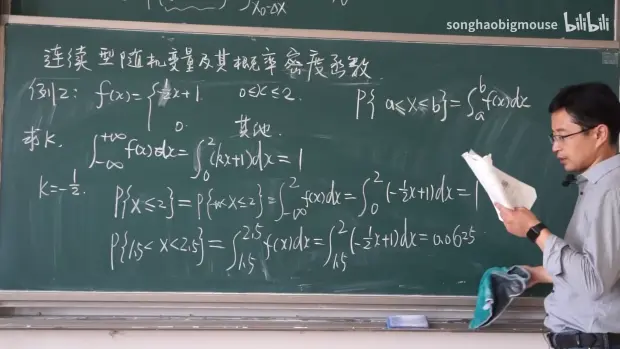 songhaobigmouse bilibili
x₀-Δx
连续型随机变量及其概率密度函数
例2: f(x)={-½x+1 0≤x≤2. P{a≤X≤b}=∫_a^b f(x)dx
0. 其他.
求K. ∫_{-∞}^{+∞} f(x)dx=∫_0^2(kx+1)dx=1
K=-½. P{X≤2}=P{-∞<X≤2}=∫_{-∞}^2 f(x)dx=∫_0^2(-½x+1)dx=1
P{1.5<X<2.5}=∫_{1.5}^{2.5} f(x)dx=∫_{1.5}^2(-½x+1)dx=0.0625